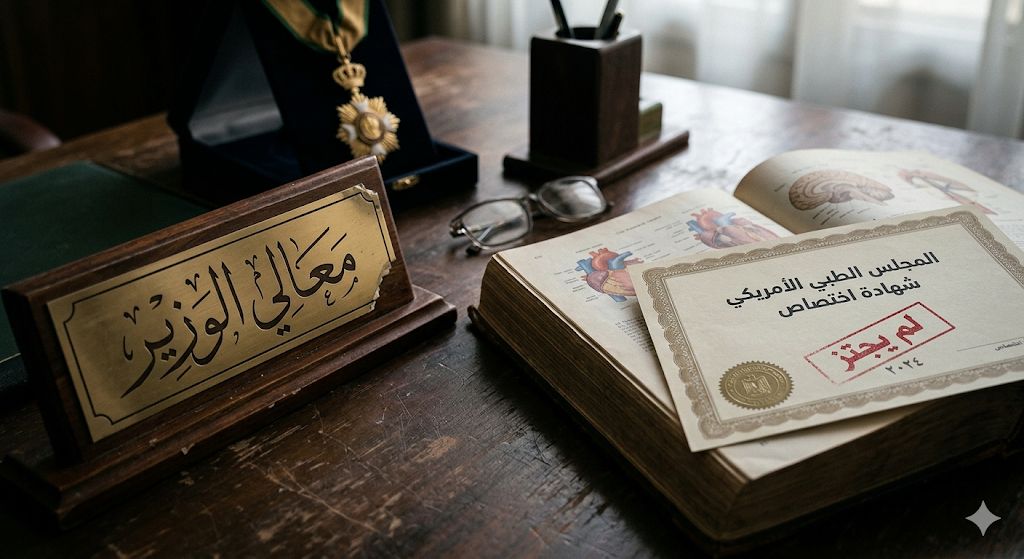 معالي الوزير
المجلس الطبي الأمريكي
شهادة اختصاص
لم يجتز
٢٠٢٤